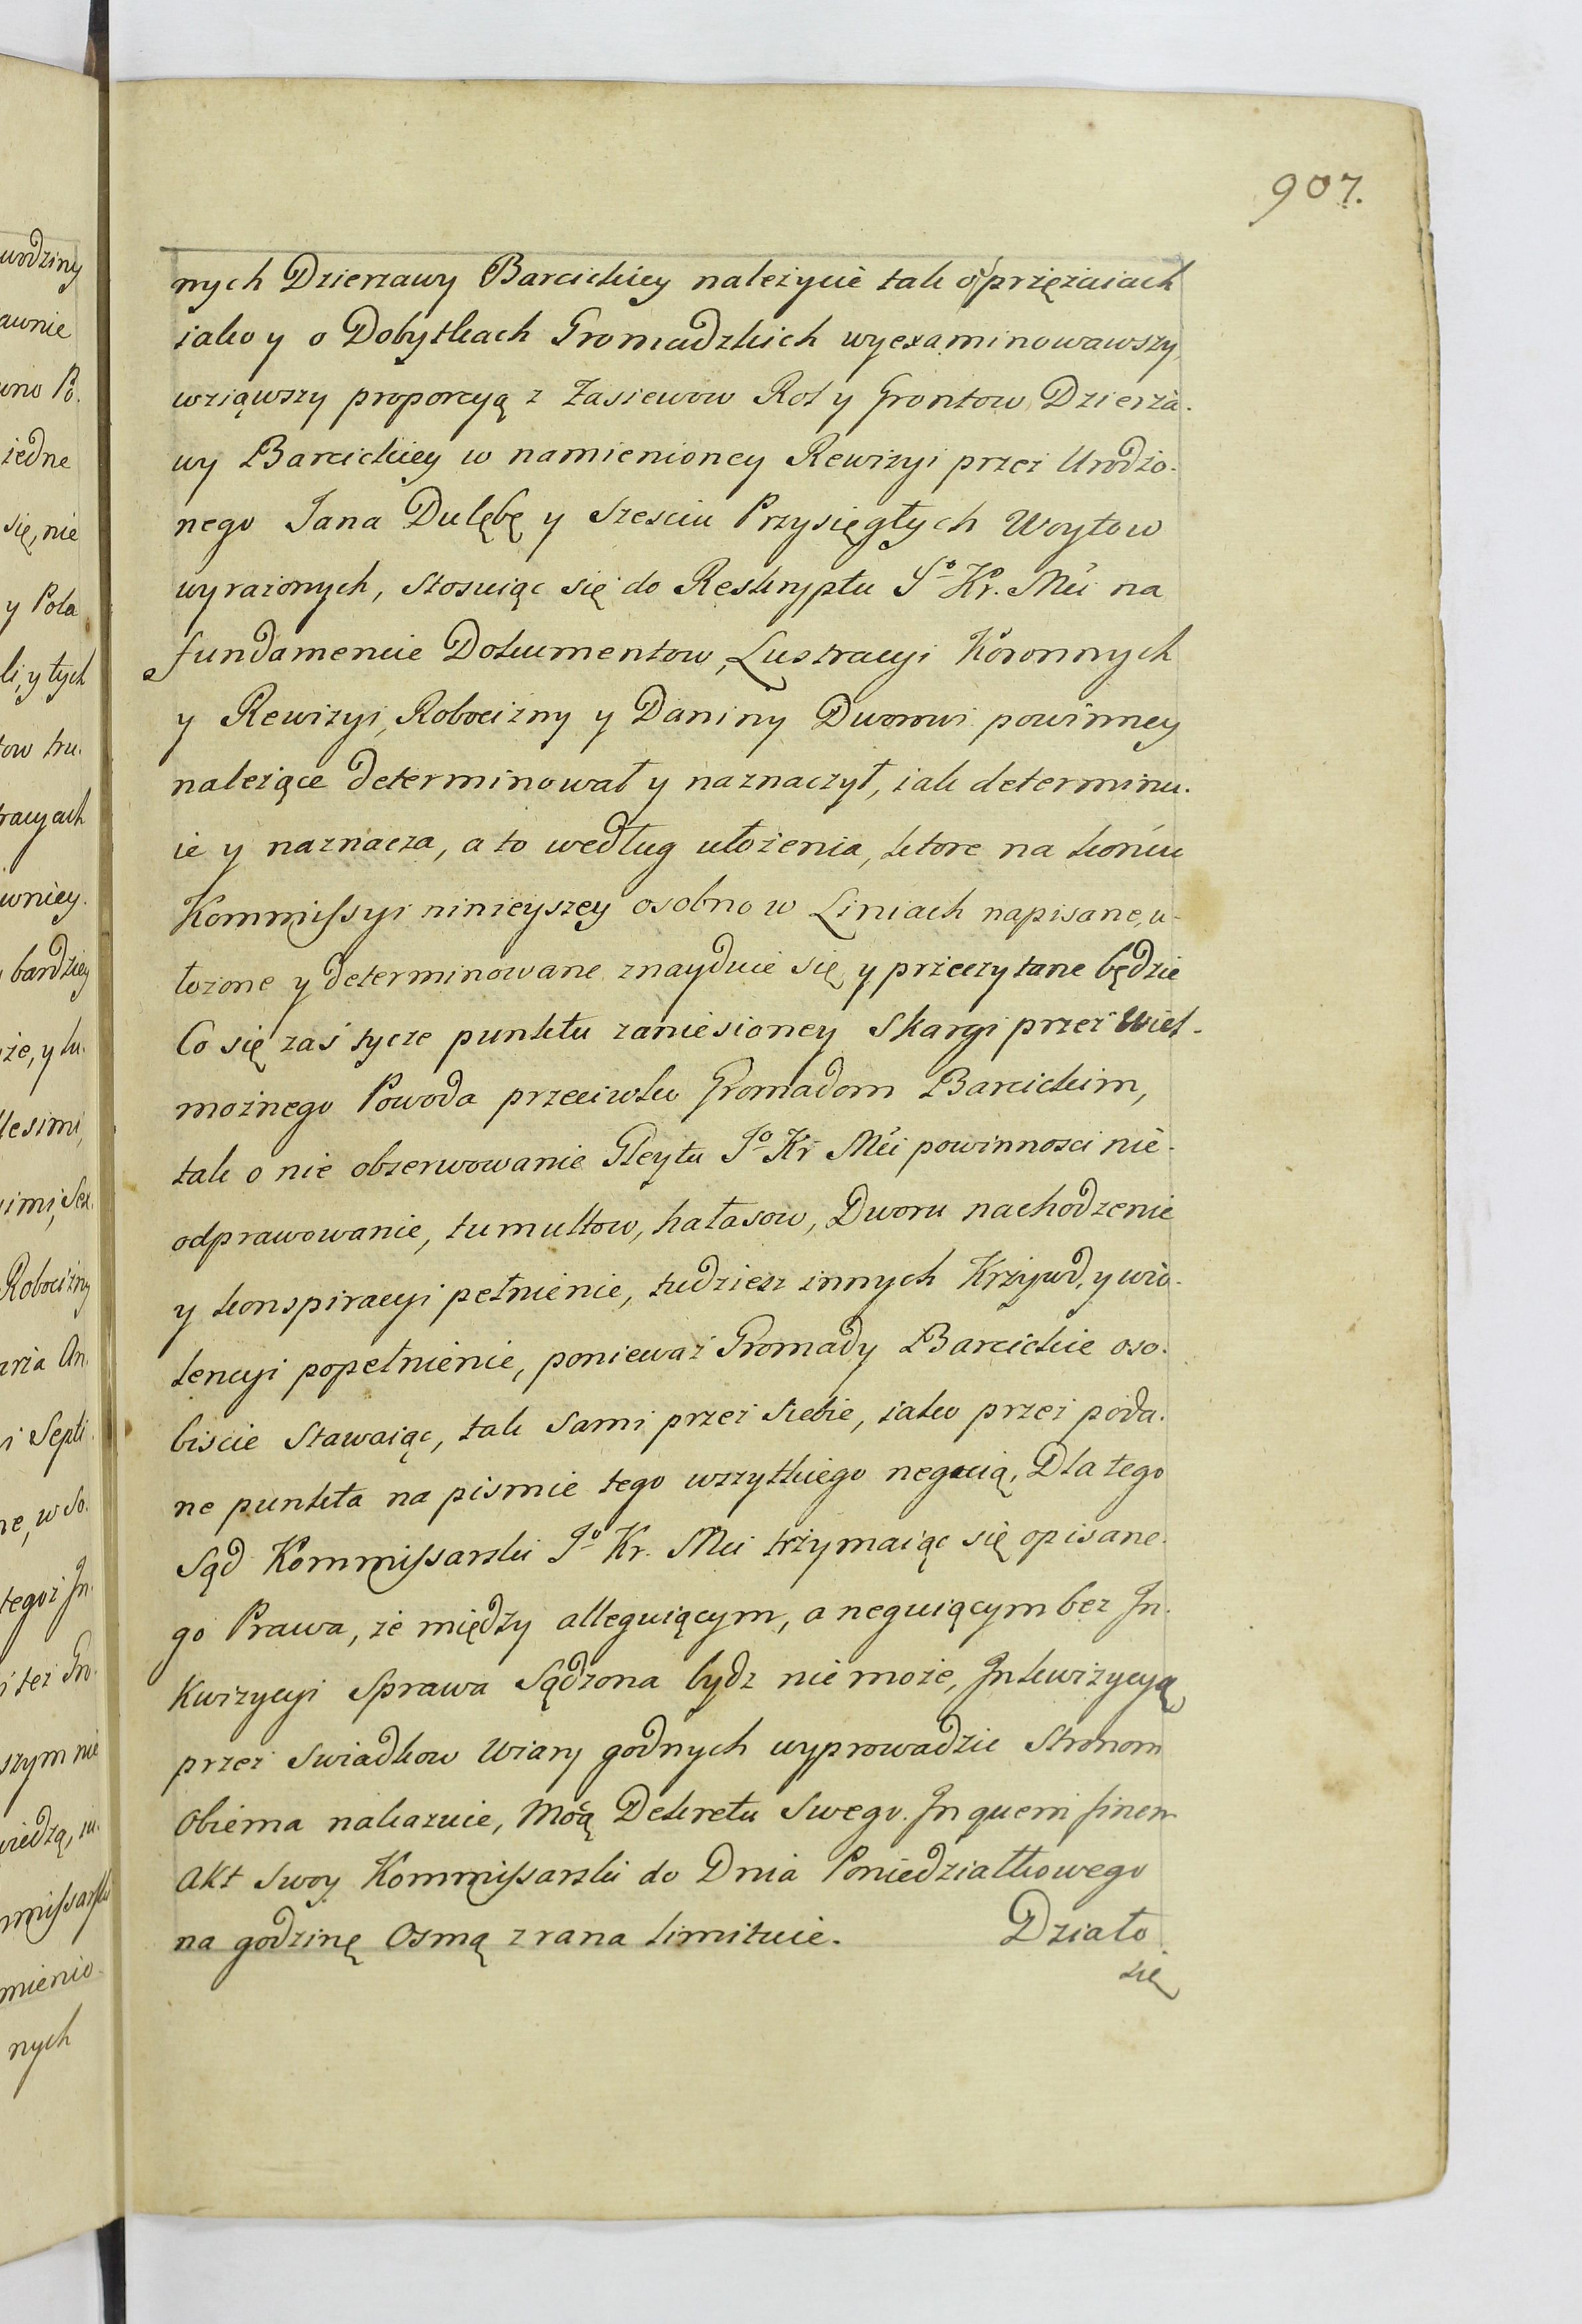 907.
nych Dzierzawy Barcickiey należycie tak o sprzężaiach
iako y o Dobytkach Gromadzkich wyexaminowawszy,
wziąwszy proporcyą z Zasiewow Rol y Grontow Dzierża-
wy Barcickiey w namienioney Rewizyi przez Urodzo-
nego Jana Dulębę y Szesciu Przysięgłych Woytow
wyrażonych, Stosuiąc się do Reskryptu Jo Kr. Mći na
fundamencie Dokumentow, Lustracyi Koronnych
y Rewizyi, Robocizny y Daniny Dworowi powinney
należące determinował y naznaczył, iak determinu-
ie y naznacza, a to według ułożenia, ktore na końcu
Kommissyi ninieyszey osobno w Liniach napisane, u-
łożone y determinowane znayduie się y przeczytane będzie
Co się zaś tycze punktu zaniesioney Skargi przez Wiel-
możnego Powoda przeciwko Gromadom Barcickim,
tak o nie obserwowanie Gleytu Jo Kr Mći powinnosci nie-
odprawowanie, tumultow, hałasow, Dworu nachodzenie
y konspiracyi pełnienie, tudziesz innych Krzywd, y wio-
lencyi popełnienie, ponieważ Gromady Barcickie oso-
biscie Stawaiąc, tak Sami przez Siebie, iako przez poda-
ne punkta na pismie tego wszytkiego neguią, Dla tego
Sąd Kommissarski Jo Kr. Mci trzymaiąc się opisane-
go Prawa, że między alleguiącym, a neguiącym bez In-
kwizycyi Sprawa Sądzona bydz nie może, Inkwizycyą
przez Swiadkow Wiary godnych wyprowadzic Stronom
Obiema nakazuie, Mocą Dekretu Swego. In quem finem
Akt Swoy Kommissarski do Dnia Poniedziałkowego
na godzinę Osmą z rana limituie. Działo
się